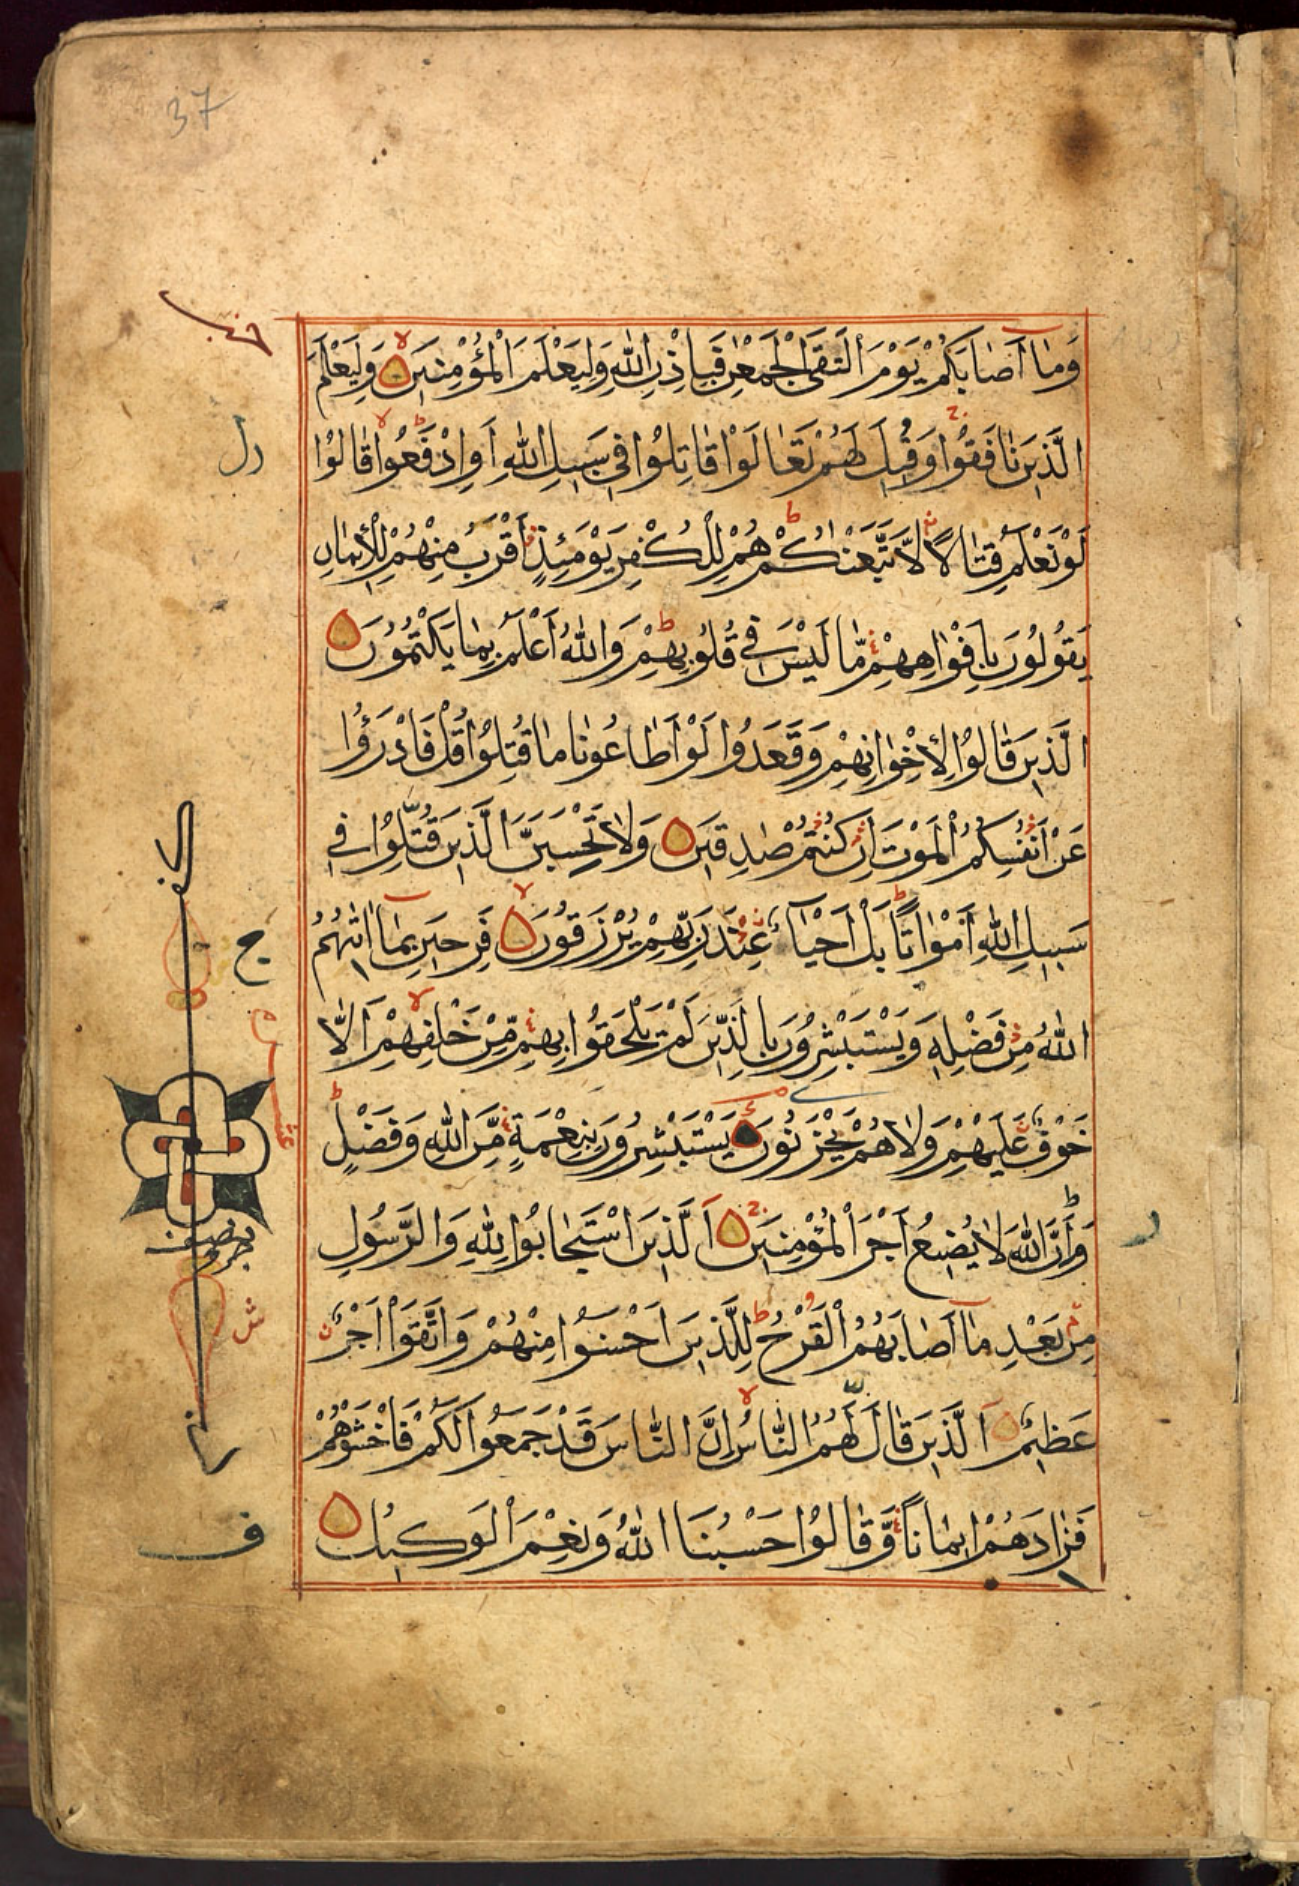 37
وَمَا أَصَابَكُمْ يَوْمَ الْتَقَى الْجَمْعٰنِ فَبِاِذْنِ اللّٰهِ وَلِيَعْلَمَ الْمُؤْمِنِينَ وَلِيَعْلَمَ
الَّذِينَ نَافَقُوا وَقِيلَ لَهُمْ تَعَالَوْا قَاتِلُوا فِي سَبِيلِ اللّٰهِ اَوِ ادْفَعُوا قَالُوا
لَوْ نَعْلَمُ قِتَالًا لَّاتَّبَعْنٰكُمْ هُمْ لِلْكُفْرِ يَوْمَئِذٍ اَقْرَبُ مِنْهُمْ لِلْاِيمَانِ
يَقُولُونَ بِاَفْوَاهِهِمْ مَّا لَيْسَ فِي قُلُوبِهِمْ وَاللّٰهُ اَعْلَمُ بِمَا يَكْتُمُونَ
الَّذِينَ قَالُوا لِاِخْوَانِهِمْ وَقَعَدُوا لَوْ اَطَاعُونَا مَا قُتِلُوا قُلْ فَادْرَؤُا
عَنْ اَنْفُسِكُمُ الْمَوْتَ اِنْ كُنْتُمْ صٰدِقِينَ وَلَا تَحْسَبَنَّ الَّذِينَ قُتِلُوا فِي
سَبِيلِ اللّٰهِ اَمْوَاتًا بَلْ اَحْيَآءٌ عِنْدَ رَبِّهِمْ يُرْزَقُونَ فَرِحِينَ بِمَآ اٰتٰىهُمُ
اللّٰهُ مِنْ فَضْلِهٖ وَيَسْتَبْشِرُونَ بِالَّذِينَ لَمْ يَلْحَقُوا بِهِمْ مِّنْ خَلْفِهِمْ اَلَّا
خَوْفٌ عَلَيْهِمْ وَلَا هُمْ يَحْزَنُونَ يَسْتَبْشِرُونَ بِنِعْمَةٍ مِّنَ اللّٰهِ وَفَضْلٍ
وَاَنَّ اللّٰهَ لَا يُضِيعُ اَجْرَ الْمُؤْمِنِينَ اَلَّذِينَ اسْتَجَابُوا لِلّٰهِ وَالرَّسُولِ
مِنْ بَعْدِ مَآ اَصَابَهُمُ الْقَرْحُ لِلَّذِينَ اَحْسَنُوا مِنْهُمْ وَاتَّقَوْا اَجْرٌ
عَظِيمٌ اَلَّذِينَ قَالَ لَهُمُ النَّاسُ اِنَّ النَّاسَ قَدْ جَمَعُوا لَكُمْ فَاخْشَوْهُمْ
فَزَادَهُمْ اِيمَانًا وَّقَالُوا حَسْبُنَا اللّٰهُ وَنِعْمَ الْوَكِيلُ